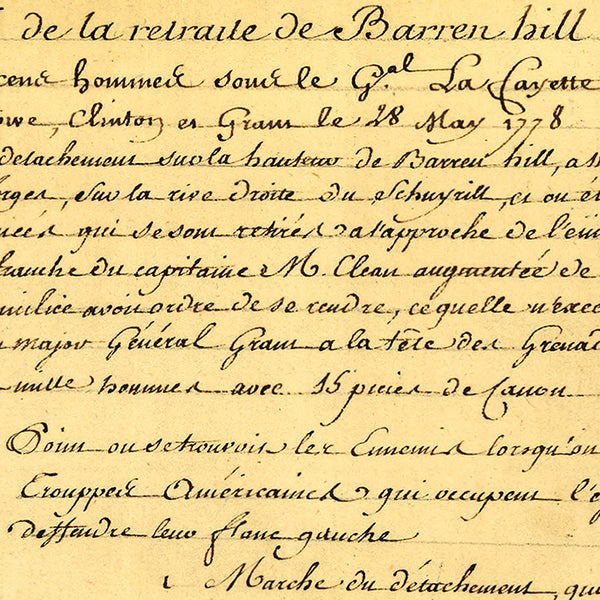 de la retraite de Barren hill
cens hommes sous le G.al La Fayette
owe, Clinton et Grant le 28 May 1778
detachement sur la hauteur de Barren hill, a
orges, sur la rive droite du Schuyrill, et ou
qui se sont retirés a l'approche de l'en
franche du capitaine M. Clean augmentée de
milice avoit ordre de se rendre, ce quelle n'exec
major Général Grant a la tête des Grenad
mille hommes avec 15 pieces de Canon
Point ou se trouvois les Ennemis lorsqu'on
Trouppes Américaines qui occupent l'é
deffendre leur flanc gauche
Marche du détachement, qui